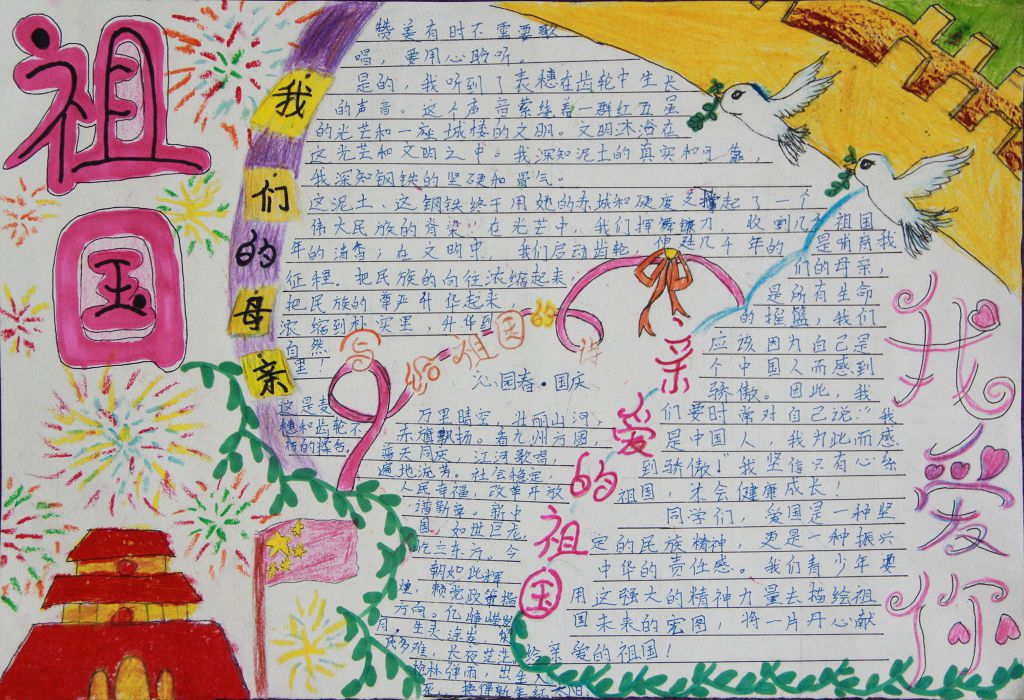 祖国
我们的母亲
赞美有时不需要歌
唱，要用心聆听。
是的，我听到了麦穗在齿轮中生长
的声音。这个声音萦绕着一群红五星
的光芒和一座城楼的文明。文明沐浴在
这光芒和文明之中。我深知泥土的真实和可靠，
我深知钢铁的坚硬和骨气。
这泥土、这钢铁终于用她的赤城和硬度支撑起了一个
伟大民族的脊梁
在光芒中，我们挥舞镰刀，收割几
年的清香；在文明中，我们启动齿轮，
几千年的
征程。把民族的向往浓缩起来
把民族的尊严升华起来，
浓缩到朴实里，升华到
自然
里！
这是麦
穗和齿轮不
朽的
写给祖国的诗
沁园春·国庆
万里晴空，壮丽山河，
赤旗飘扬。看九州方圆，
普天同庆，江河歌唱，
遍地流芳。社会稳定，
人民幸福，改革开放
谱新章。新中
国，如世巨龙，
屹立东方。今
朝如此辉
煌，赖党政策指
方向。忆
生灵涂炭，
多难，长夜茫茫
枪林弹雨，出生入
换得新生红太阳
亲爱的祖国
祖国
是哺育我
们的母亲，
是所有生命
的摇篮，我们
应该因为自己是
个中国人而感到
骄傲。因此，我
们要时常对自己说：“我
是中国人，我为此而感
到骄傲！”我坚信只有心系
祖国，才会健康成长！
同学们，爱国是一种坚
定的民族精神，更是一种振兴
中华的责任感。我们青少年要
用这强大的精神力量去描绘祖
国未来的宏图，将一片丹心献
给亲爱的祖国！
我爱你